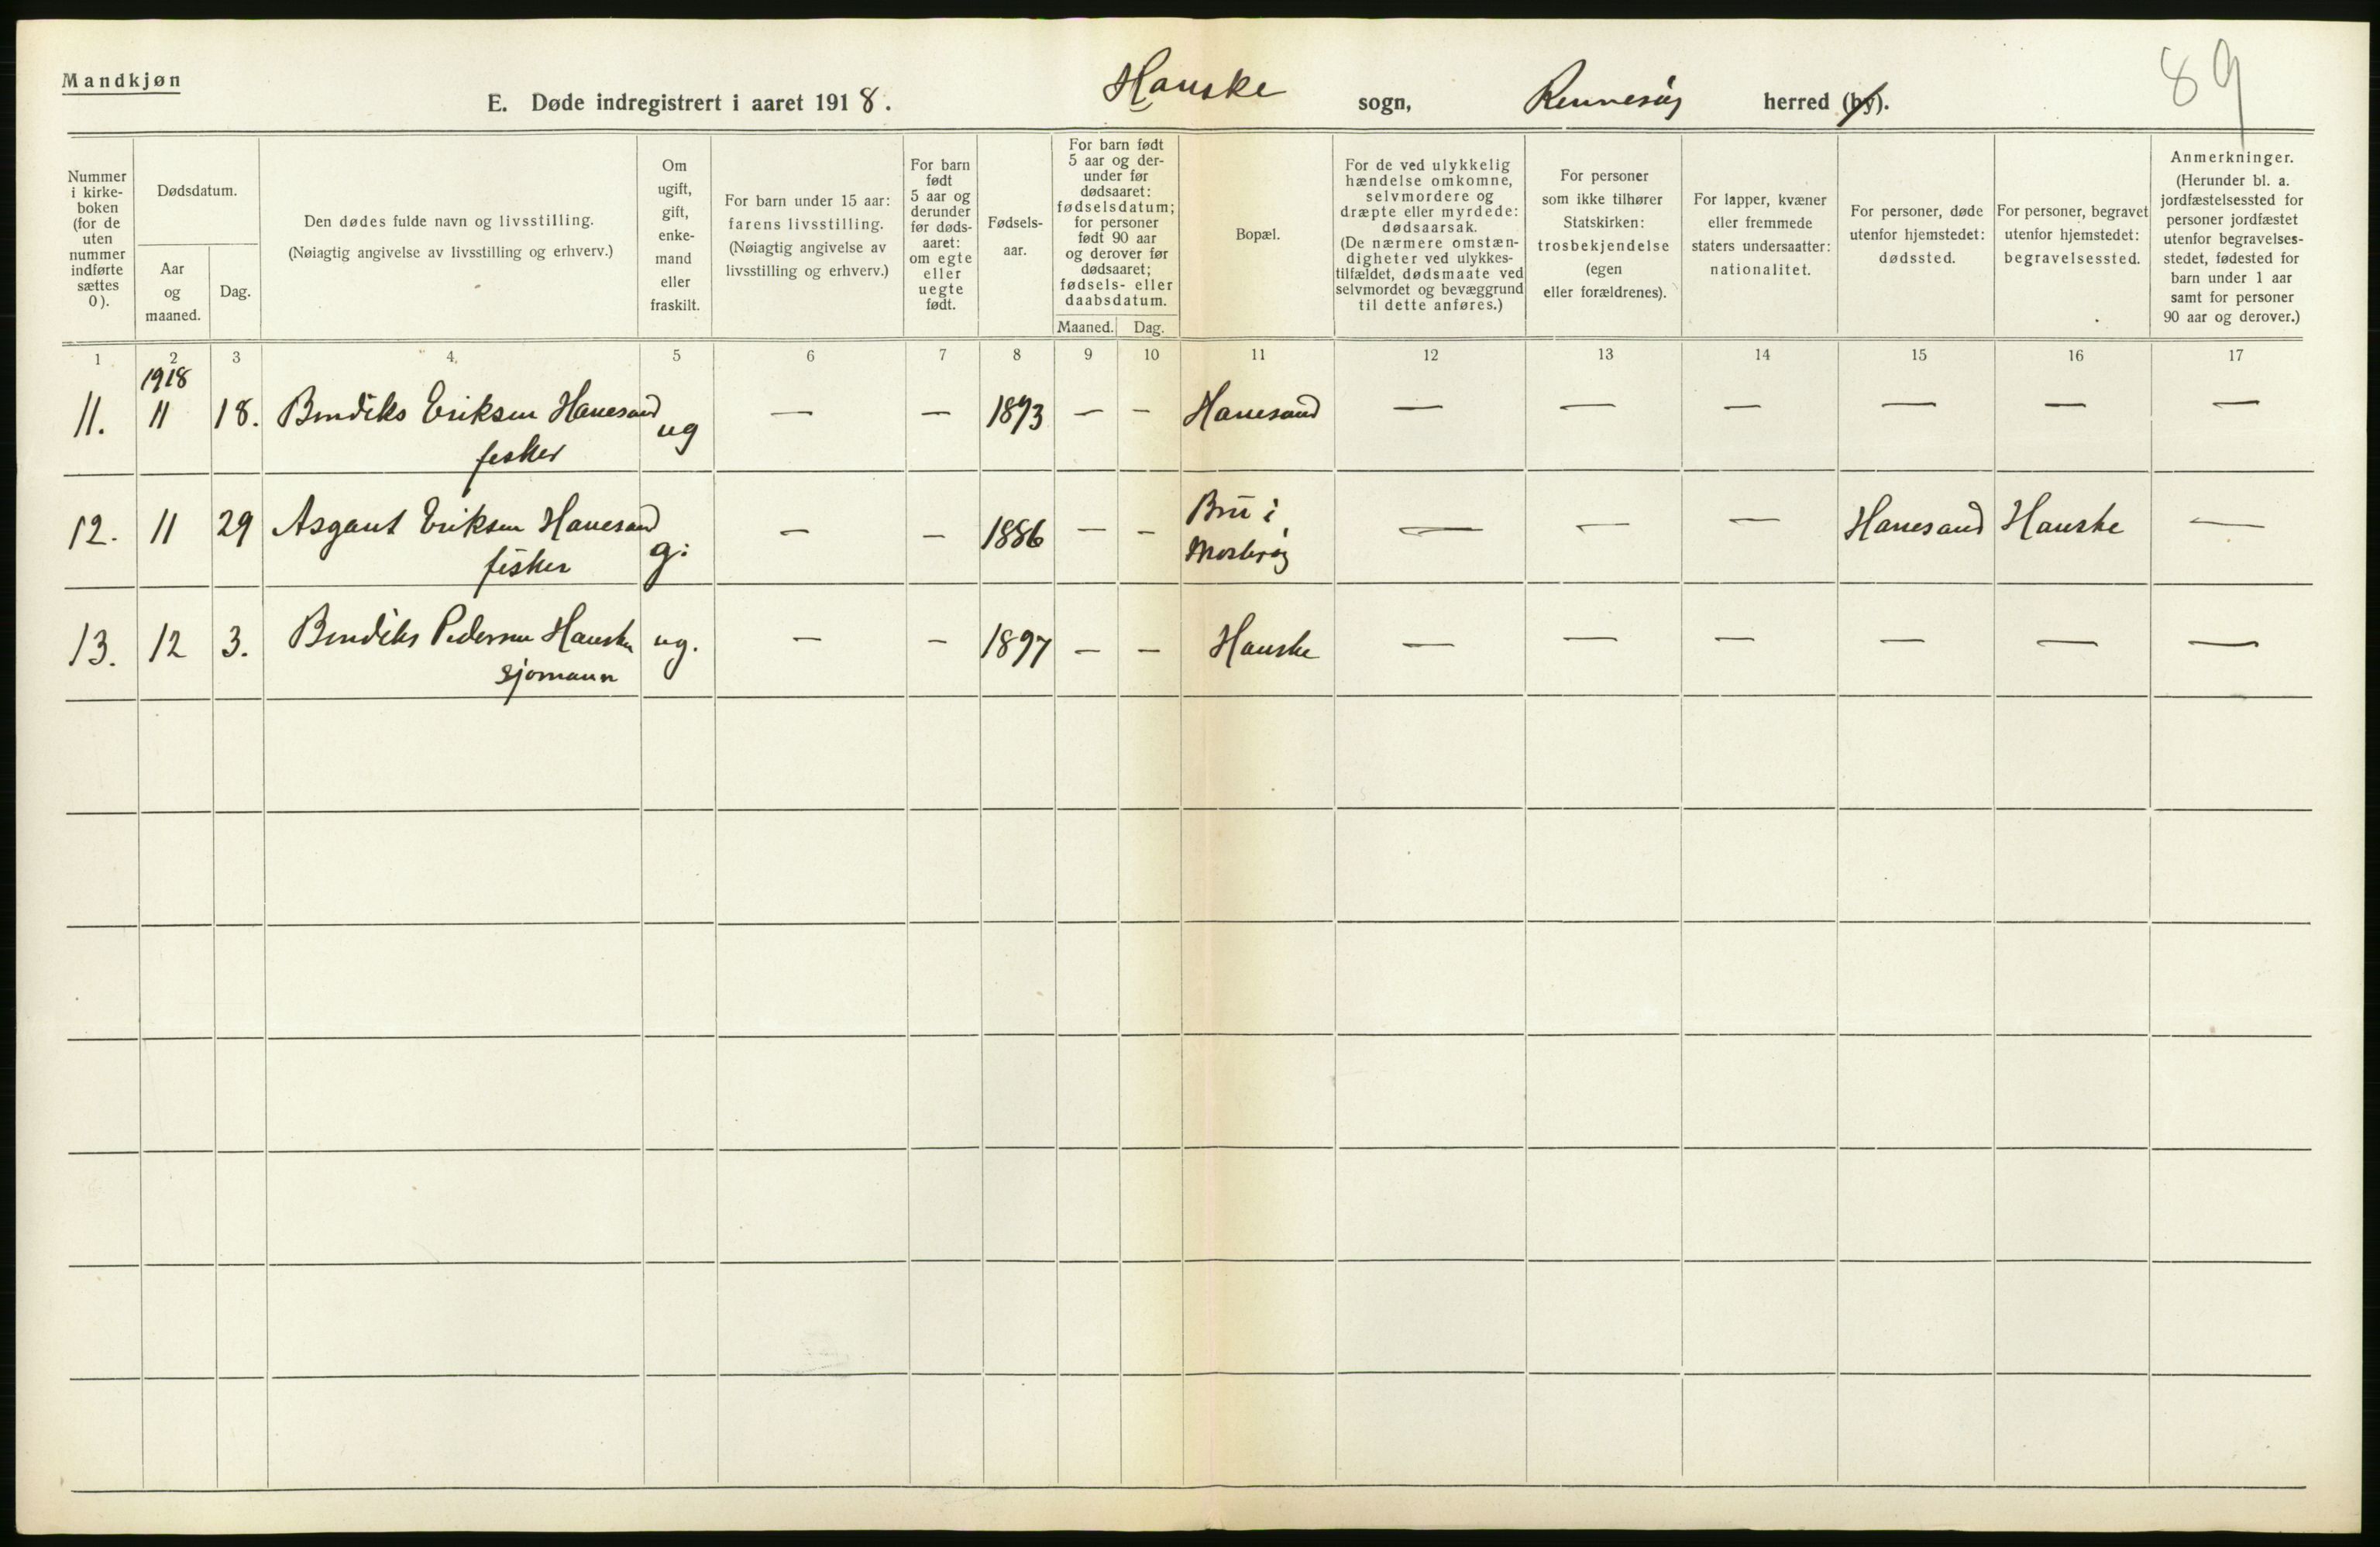 Mandkjøn
E. Døde indregistrert i aaret 1918. Hauske sogn, Rennesøy herred (by).
89
Nummer i kirkeboken (for de uten nummer indførte sættes 0).
Dødsdatum.
Aar og maaned.
Dag.
Den dødes fulde navn og livsstilling.
(Nøiagtig angivelse av livsstilling og erhverv.)
Om ugift, gift, enkemand eller fraskilt.
For barn under 15 aar: farens livsstilling. (Nøiagtig angivelse av livsstilling og erhverv.)
For barn født 5 aar og derunder før dødsaaret: om egte eller uegte født.
Fødselsaar.
For barn født 5 aar og derunder før dødsaaret: fødselsdatum; for personer født 90 aar og derover før dødsaaret; fødsels- eller daabsdatum.
Maaned. Dag.
Bopæl.
For de ved ulykkelig hændelse omkomne, selvmordere og dræpte eller myrdede: dødsaarsak. (De nærmere omstændigheter ved ulykkestilfældet, dødsmaate ved selvmordet og bevæggrund til dette anføres.)
For personer som ikke tilhører Statskirken: trosbekjendelse (egen eller forældrenes).
For lapper, kvæner eller fremmede staters undersaatter: nationalitet.
For personer, døde utenfor hjemstedet: dødssted.
For personer, begravet utenfor hjemstedet: begravelsessted.
Anmerkninger. (Herunder bl. a. jordfæstelsessted for personer jordfæstet utenfor begravelsesstedet, fødested for barn under 1 aar samt for personer 90 aar og derover.)
1 2 3 4. 5 6 7 8 9 10 11 12 13 14 15 16 17
1918
11. 11 18. Bendiks Eriksen Hanesand ug — — 1893 — — Hanesand — — — — — —
fisker
12. 11 29 Asgaut Eriksen Hanesand g: — — 1886 — — Bru i Mosterøy — — — Hanesand Hauske —
fisker
13. 12 3. Bendiks Pedersen Hauske ug. — — 1897 — — Hauske — — — — — —
sjømann